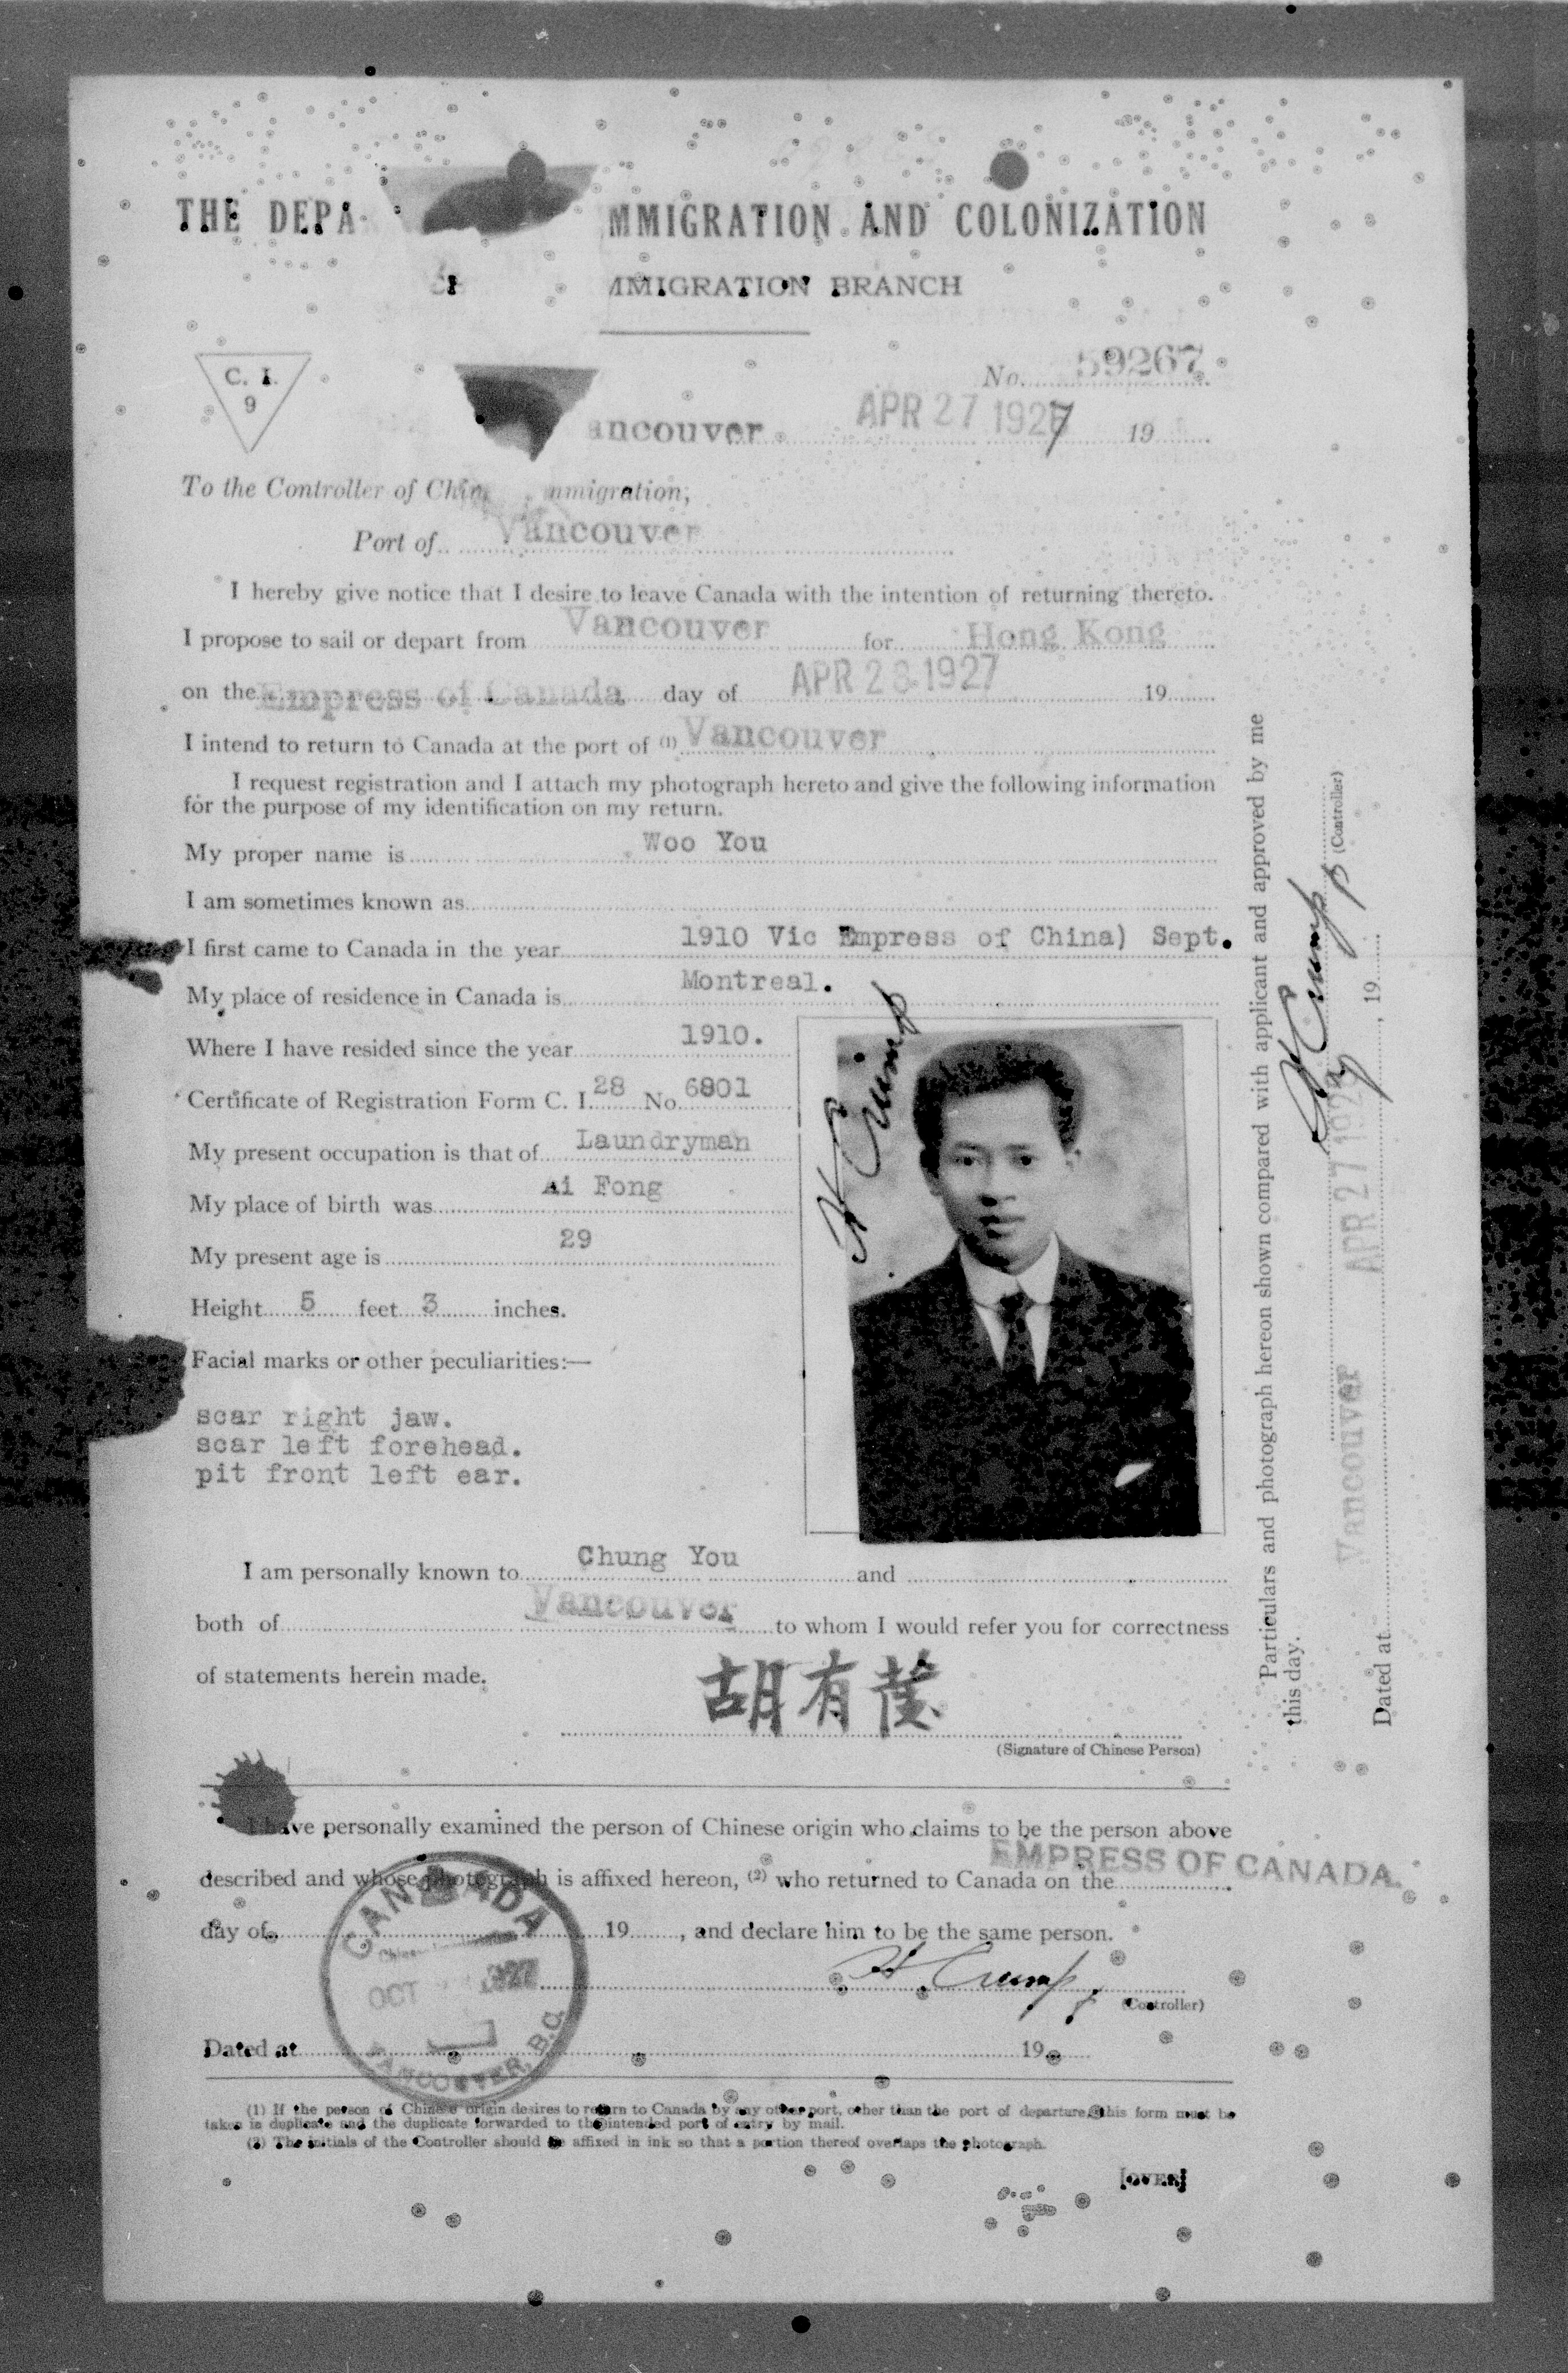 THE DEPA MMIGRATION AND COLONIZATION
MMIGRATION BRANCH
C. I.
9
No. 59267
ancouver APR 27 1927 19
To the Controller of Chin mmigration,
Port of Vancouver
I hereby give notice that I desire to leave Canada with the intention of returning thereto.
I propose to sail or depart from Vancouver for Hong Kong
on the Empress of Canada day of APR 28 1927 19
I intend to return to Canada at the port of (1) Vancouver
I request registration and I attach my photograph hereto and give the following information
for the purpose of my identification on my return.
My proper name is Woo You
I am sometimes known as
I first came to Canada in the year 1910 Vic Empress of China) Sept.
My place of residence in Canada is Montreal.
Where I have resided since the year 1910.
Certificate of Registration Form C. I. 28 No. 6801
My present occupation is that of Laundryman
My place of birth was Ai Fong
My present age is 29
Height 5 feet 3 inches.
Facial marks or other peculiarities:—
scar right jaw.
scar left forehead.
pit front left ear.
H Crump
I am personally known to Chung You and
both of Vancouver to whom I would refer you for correctness
of statements herein made.
胡有
(Signature of Chinese Person)
I have personally examined the person of Chinese origin who claims to be the person above
described and whose photograph is affixed hereon, (2) who returned to Canada on the EMPRESS OF CANADA.
day of 19 , and declare him to be the same person.
H Crump
(Controller)
Dated at 19
CANADA
OCT 1927
VANCOUVER, B.C.
(1) If the person of Chinese origin desires to return to Canada by any other port, other than the port of departure, this form must be
taken in duplicate and the duplicate forwarded to the intended port of entry by mail.
(2) The initials of the Controller should be affixed in ink so that a portion thereof overlaps the photograph.
[OVER]
Particulars and photograph hereon shown compared with applicant and approved by me
this day.
H Crump (Controller)
Dated at Vancouver APR 27 192 , 19